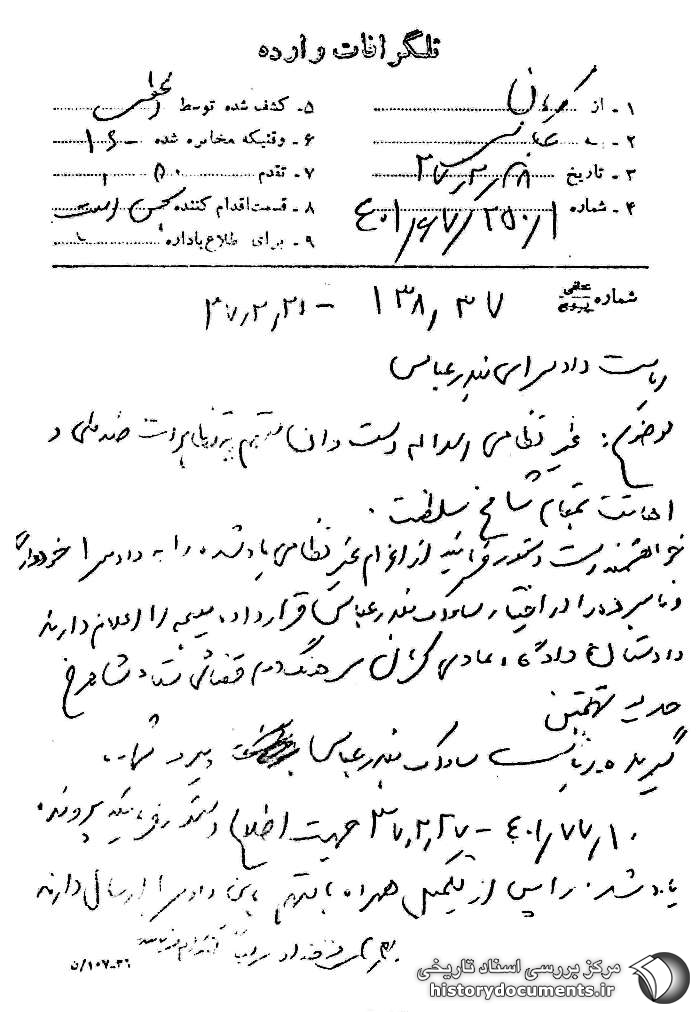 تلگرافات وارده
۱ - از کرمان
۲ - به
۳ - تاریخ ۳۷٫۲٫۲۸
۴ - شماره ۴۰۱٫۶۷٫۲۵۰٫۱
۵ - کشف شده توسط
۶ - وقتیکه مخابره شده ۱۶۰۰
۷ - تقدم
۸ - قسمت اقدام کننده
۹ - برای اطلاع باداره
شماره عطفی پیرو ۱۳۸٫۳۷ - ۳۷٫۲٫۲۱
ریاست دادسرای بندرعباس
موضوع: غیر نظامی اسداله متهم بتظاهرات ضد ملی و
اهانت بمقام شامخ سلطنت.
خواهشمند است دستور فرمائید از اعزام غیر نظامی یاد شده را به دادسرا خودداری
و نامبرده را در اختیار ساواک بندرعباس قرار داده نتیجه را اعلام دارند
دادستان دادگاه عادی کرمان سرهنگ دوم قضائی ستاد شاهرخ
حدید تهمتن
گیرنده ریاست ساواک بندرعباس پیرو شماره
۴۰۱٫۷۷٫۱۰ - ۳۷٫۲٫۲۷ جهت اطلاع و دستور فرمائید پرونده
یاد شده را پس از تکمیل همراه با متهم باین دادسرا ارسال دارند
ن/۱۰۷-۳۶
مرکز بررسی اسناد تاریخی
historydocuments.ir